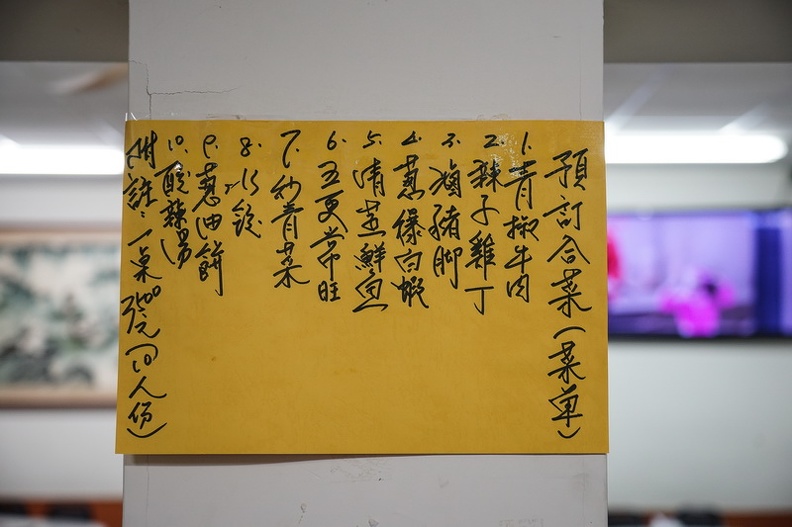 預訂合菜(菜單)
1. 青椒牛肉
2. 辣子雞丁
3. 滷豬脚
4. 蔥爆白蝦
5. 清蒸鮮魚
6. 五更常旺
7. 炒青菜
8.
9. 蔥油餅
10. 酸辣湯
附註: 一桌3500元(10人份)